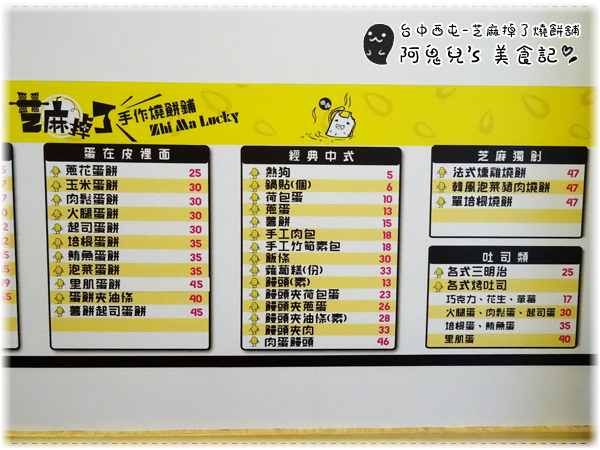 台中西屯-芝麻掉了燒餅舖
阿鬼兒's 美食記
芝麻掉了
手作燒餅舖
Zhi Ma Lucky
蛋在皮裡面
蔥花蛋餅 25
玉米蛋餅 30
肉鬆蛋餅 30
火腿蛋餅 30
起司蛋餅 30
培根蛋餅 35
鮪魚蛋餅 35
泡菜蛋餅 35
里肌蛋餅 45
蛋餅夾油條 40
薯餅起司蛋餅 45
經典中式
熱狗 5
鍋貼(個) 6
荷包蛋 10
蔥蛋 13
薯餅 15
手工肉包 18
手工竹筍素包 18
飯條 30
蘿蔔糕(份) 33
饅頭(素) 13
饅頭夾荷包蛋 23
饅頭夾蔥蛋 26
饅頭夾油條(素) 28
饅頭夾肉 33
肉蛋饅頭 46
芝麻獨創
法式燻雞燒餅 47
韓風泡菜豬肉燒餅 47
單培根燒餅 47
吐司類
各式三明治 25
各式烤吐司
巧克力、花生、草莓 17
火腿蛋、肉鬆蛋、起司蛋 30
培根蛋、鮪魚蛋 35
里肌蛋 40